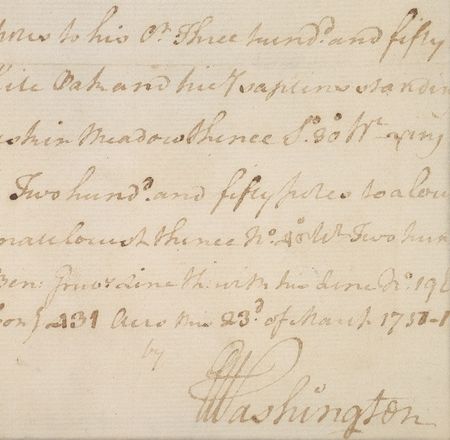 to his Cr. Three hund.d and fifty
Oak and hick saplins standin
Meadow thence S.o 30 W.
Two hund.d and fifty poles to a lou
Locust thence N.o W.t Two hun
Ben: line th: with his line N.o
131 Acres this 23.d of March 1750-1
by
GWashington